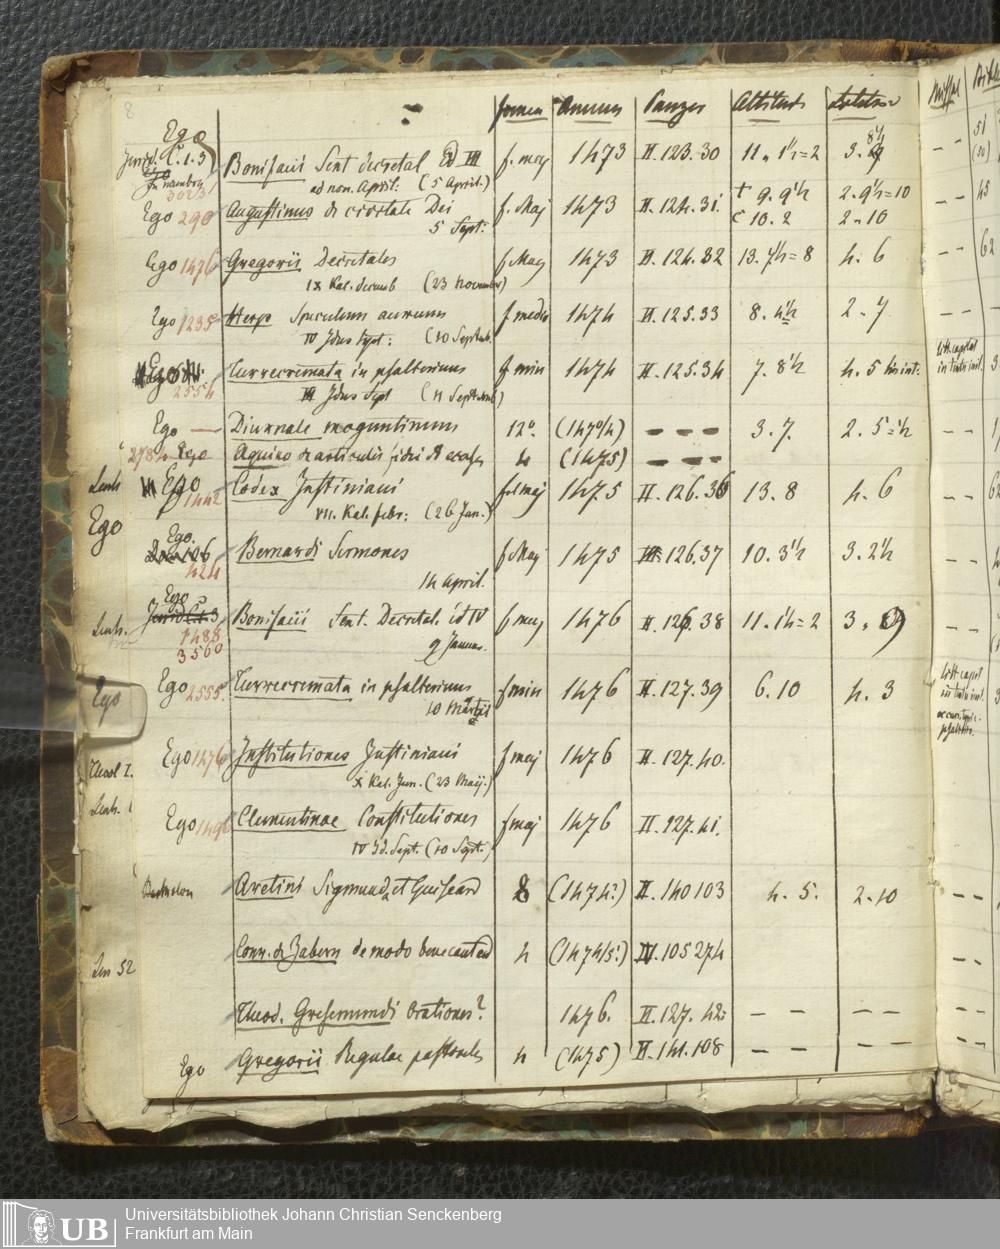 8
forma Annus Panzer Altitudo Latitudo
Ego
Jurid. C. 1. 3
Bonifacii Sext decretal Ed VIII f. maj 1473 II. 123. 30 11. 1½ = 2 3. 8½
ad non. April: (5 April.)
302/31
Ego 290 Augustinus de civitate Dei f. Maj 1473 II. 124. 31. † 9. 9½ 2. 9½ = 10
5 Sept: C 10. 2 2 = 10
Ego 1476 Gregorii Decretales f Maj 1473 II. 124. 32 13. 7½ = 8 4. 6
IX Kal. decemb (23 November)
Ego 1235 Herp Speculum aureum f medio 1474 II. 125. 33 8. 4½ 2. 7
IV Idus Sept: (10 Septemb.
Ego
2554
Turrecremata in psalterium f min 1474 II. 125. 34 7. 8½ 4. 5
III Idus Sept (11 Septemb)
Ego — Diurnale moguntinum 12°. (1470/4) - - - 3. 7. 2. 5 = ½
2784 Ego Aquino de articulis fidei et eccles 4 (1475) - - -
Ego 1442 Codex Justiniani fol maj 1475 II. 126. 36 13. 8 4. 6
VII. Kal. febr: (26 Jan.)
Ego
Ego.
424
Bernardi Sermones f Maj 1475 III. 126. 37 10. 3½ 3. 2½
14 April.
Ego
Jurid C. 1. 3
1488
3560
Bonifacii Sext. Decretal. f maj 1476 II. 126. 38 11. 1½ = 2 3. 9
9 Januar.
Ego
Ego 2555. Turrecremata in psalterium f min 1476 II. 127. 39 6. 10 4. 3
10 Martii
Ego 1476 Institutiones Justiniani f maj 1476 II. 127. 40.
X Kal. Jun. (23 Maij.)
Theol I.
Ego Clementinae Constitutiones f maj 1476 II. 127. 41.
IV Id. Sept. (10 Sept.)
Aretini Sigmund, et Guiscard 8 (1474?) II. 140 103 4. 5. 2. 10
Conr. de Zabern de modo bene cantand 4 (1474/5?) IV. 105 274
Theod. Gresemundi Orationes? 1476. II. 127. 42. - - - -
Ego Gregorii Regulae pastorales 4 (1475) II. 141. 108 - - - -
UB Universitätsbibliothek Johann Christian Senckenberg
Frankfurt am Main